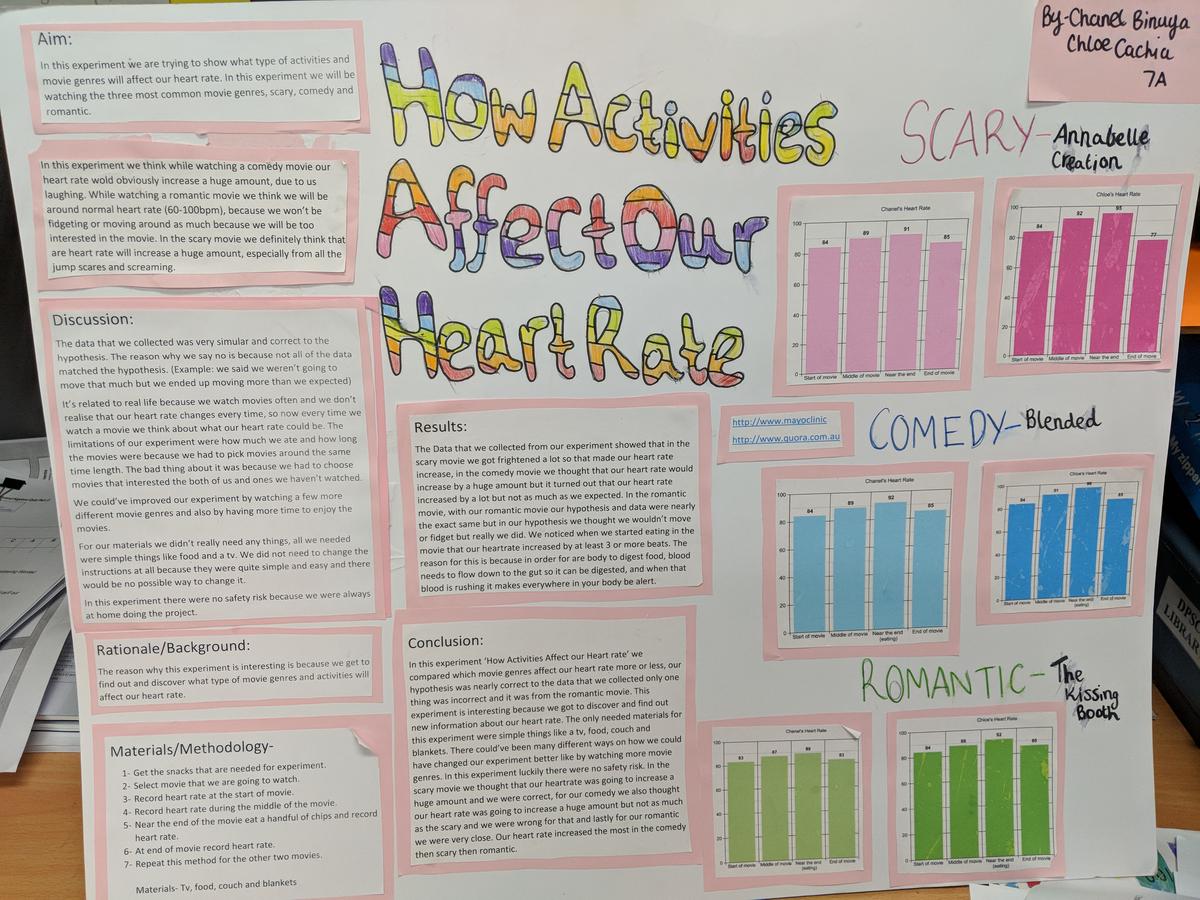 Aim:
In this experiment we are trying to show what type of activities and
movie genres will affect our heart rate. In this experiment we will be
watching the three most common movie genres, scary, comedy and
romantic.
In this experiment we think while watching a comedy movie our
heart rate wold obviously increase a huge amount, due to us
laughing. While watching a romantic movie we think we will be
around normal heart rate (60-100bpm), because we won't be
fidgeting or moving around as much because we will be too
interested in the movie. In the scary movie we definitely think that
are heart rate will increase a huge amount, especially from all the
jump scares and screaming.
Discussion:
The data that we collected was very simular and correct to the
hypothesis. The reason why we say no is because not all of the data
matched the hypothesis. (Example: we said we weren't going to
move that much but we ended up moving more than we expected)
It's related to real life because we watch movies often and we don't
realise that our heart rate changes every time, so now every time we
watch a movie we think about what our heart rate could be. The
limitations of our experiment were how much we ate and how long
the movies were because we had to pick movies around the same
time length. The bad thing about it was because we had to choose
movies that interested the both of us and ones we haven't watched.
We could've improved our experiment by watching a few more
different movie genres and also by having more time to enjoy the
movies.
For our materials we didn't really need any things, all we needed
were simple things like food and a tv. We did not need to change the
instructions at all because they were quite simple and easy and there
would be no possible way to change it.
In this experiment there were no safety risk because we were always
at home doing the project.
Rationale/Background:
The reason why this experiment is interesting is because we get to
find out and discover what type of movie genres and activities will
affect our heart rate.
Materials/Methodology-
1- Get the snacks that are needed for experiment.
2- Select movie that we are going to watch.
3- Record heart rate at the start of movie.
4- Record heart rate during the middle of the movie.
5- Near the end of the movie eat a handful of chips and record
heart rate.
6- At end of movie record heart rate.
7- Repeat this method for the other two movies.
Materials- Tv, food, couch and blankets
How Activities
Affect Our
Heart Rate
Results:
The Data that we collected from our experiment showed that in the
scary movie we got frightened a lot so that made our heart rate
increase, in the comedy movie we thought that our heart rate would
increase by a huge amount but it turned out that our heart rate
increased by a lot but not as much as we expected. In the romantic
movie, with our romantic movie our hypothesis and data were nearly
the exact same but in our hypothesis we thought we wouldn't move
or fidget but really we did. We noticed when we started eating in the
movie that our heartrate increased by at least 3 or more beats. The
reason for this is because in order for are body to digest food, blood
needs to flow down to the gut so it can be digested, and when that
blood is rushing it makes everywhere in your body be alert.
Conclusion:
In this experiment 'How Activities Affect our Heart rate' we
compared which movie genres affect our heart rate more or less, our
hypothesis was nearly correct to the data that we collected only one
thing was incorrect and it was from the romantic movie. This
experiment is interesting because we got to discover and find out
new information about our heart rate. The only needed materials for
this experiment were simple things like a tv, food, couch and
blankets. There could've been many different ways on how we could
have changed our experiment better like by watching more movie
genres. In this experiment luckily there were no safety risk. In the
scary movie we thought that our heartrate was going to increase a
huge amount and we were correct, for our comedy we also thought
our heart rate was going to increase a huge amount but not as much
as the scary and we were wrong for that and lastly for our romantic
we were very close. Our heart rate increased the most in the comedy
then scary then romantic.
http://www.mayoclinic
http://www.quora.com.au
By-Chanel Binuya
Chloe Cachia
7A
SCARY- Annabelle
Creation
Chanel's Heart Rate
100
80
60
40
20
0
84
89
91
85
Start of movie
Middle of movie
Near the end
End of movie
Chloe's Heart Rate
100
80
60
40
20
0
84
92
95
77
Start of movie
Middle of movie
Near the end
End of movie
COMEDY- Blended
Chanel's Heart Rate
100
80
60
40
20
0
84
89
92
85
Start of movie
Middle of movie
Near the end
(eating)
End of movie
Chloe's Heart Rate
100
80
60
40
20
0
84
91
Start of movie
Middle of movie
Near the end
(eating)
End of movie
ROMANTIC- The
Kissing
Booth
Chanel's Heart Rate
100
80
60
40
20
0
83
87
89
83
Start of movie
Middle of movie
Near the end
(eating)
End of movie
Chloe's Heart Rate
100
80
60
40
20
0
84
92
Start of movie
Middle of movie
Near the end
(eating)
End of movie
DPSC
LIBRAR